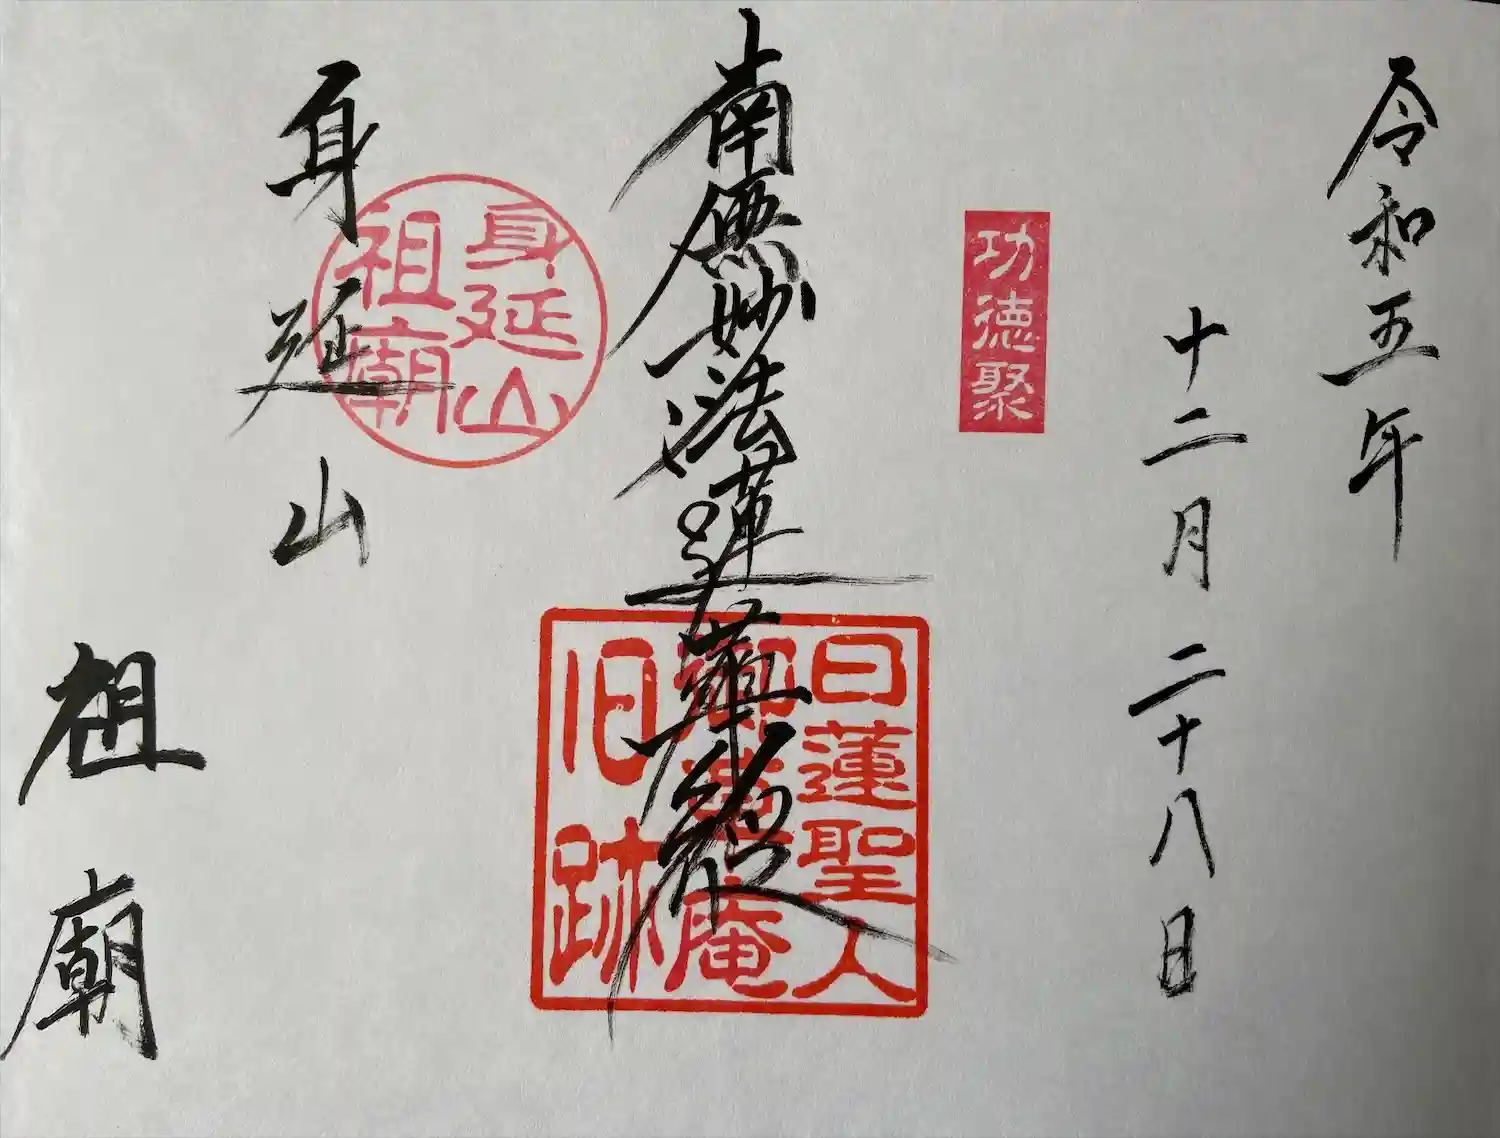 令和五年
十二月二十八日
功徳聚
南無妙法蓮華経
日蓮聖人
御草庵
旧跡
身延山
祖廟
身延山
祖廟